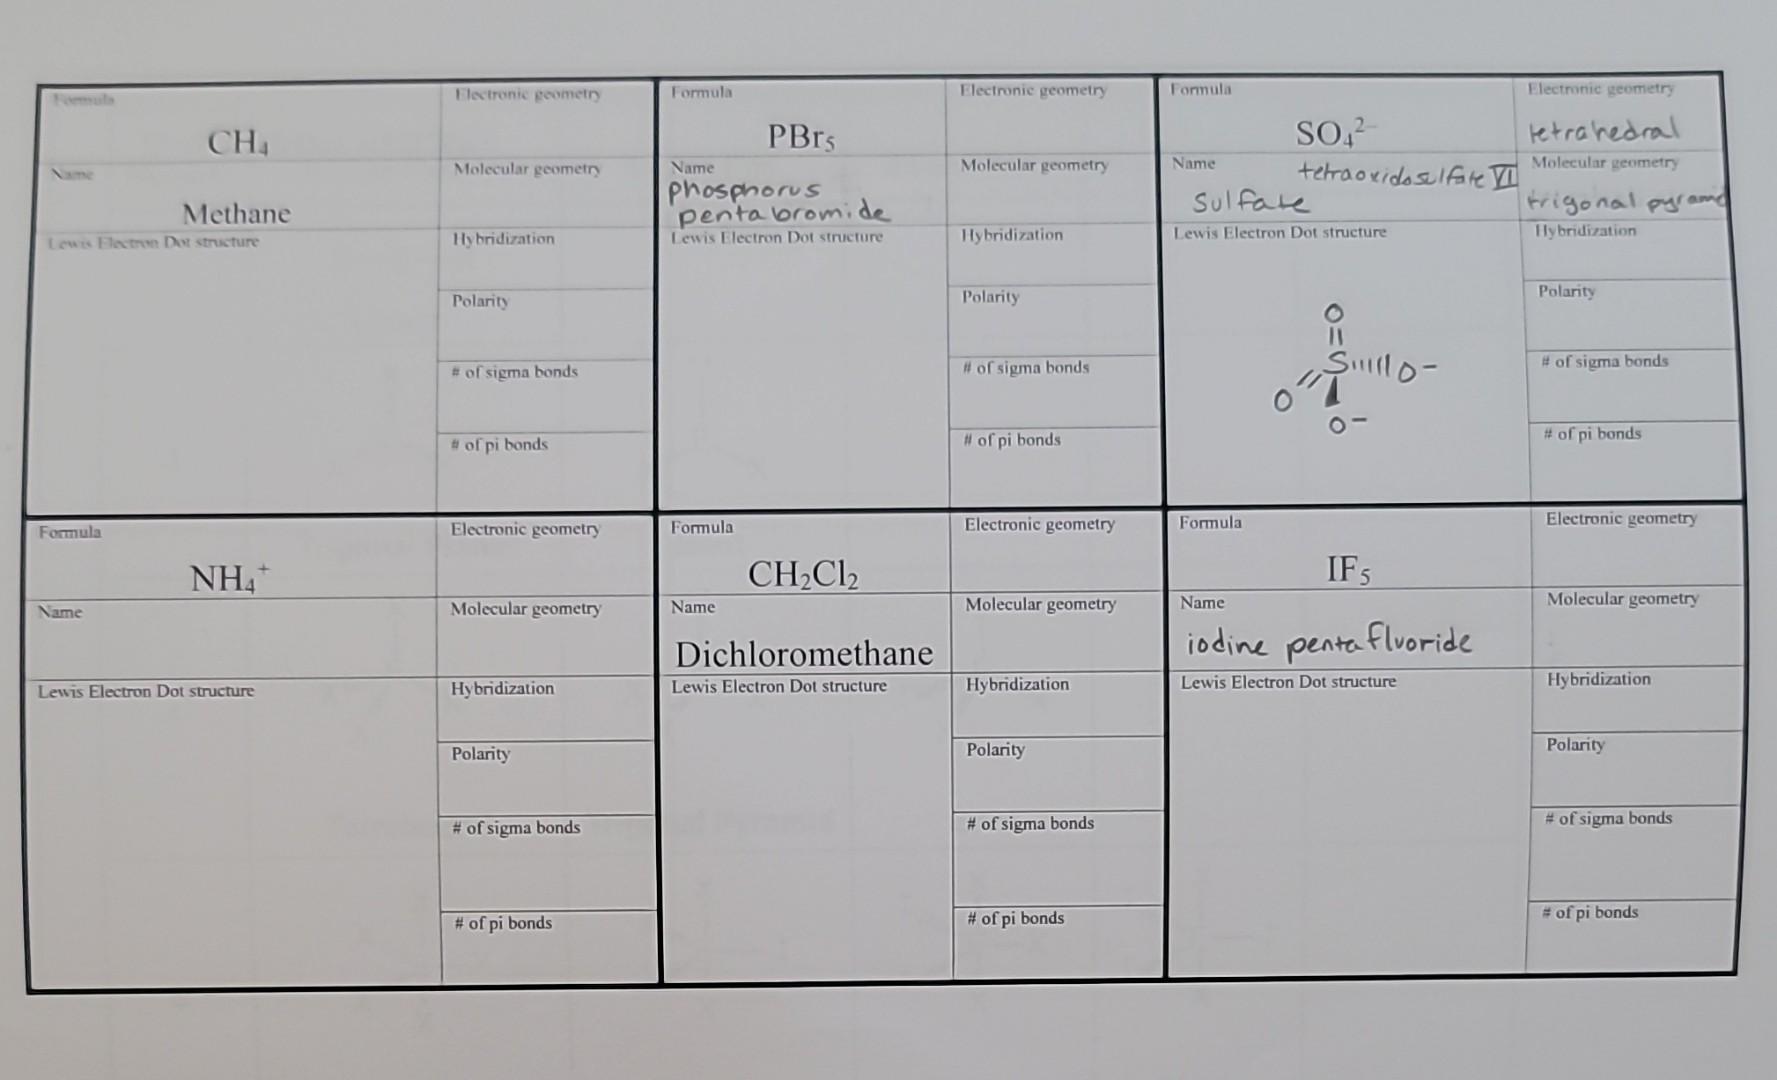 Formula
CH₄
Electronic geometry
Name
Methane
Molecular geometry
Lewis Electron Dot structure
Hybridization
Polarity
# of sigma bonds
# of pi bonds
Formula
PBr₅
Electronic geometry
Name
phosphorus
pentabromide
Molecular geometry
Lewis Electron Dot structure
Hybridization
Polarity
# of sigma bonds
# of pi bonds
Formula
SO₄²⁻
Electronic geometry
tetrahedral
Name
tetraoxidosulfate VI
sulfate
Molecular geometry
trigonal pyramid
Lewis Electron Dot structure
O
S O-
O
O-
Hybridization
Polarity
# of sigma bonds
# of pi bonds
Formula
NH₄⁺
Electronic geometry
Name
Molecular geometry
Lewis Electron Dot structure
Hybridization
Polarity
# of sigma bonds
# of pi bonds
Formula
CH₂Cl₂
Electronic geometry
Name
Dichloromethane
Molecular geometry
Lewis Electron Dot structure
Hybridization
Polarity
# of sigma bonds
# of pi bonds
Formula
IF₅
Electronic geometry
Name
iodine pentafluoride
Molecular geometry
Lewis Electron Dot structure
Hybridization
Polarity
# of sigma bonds
# of pi bonds